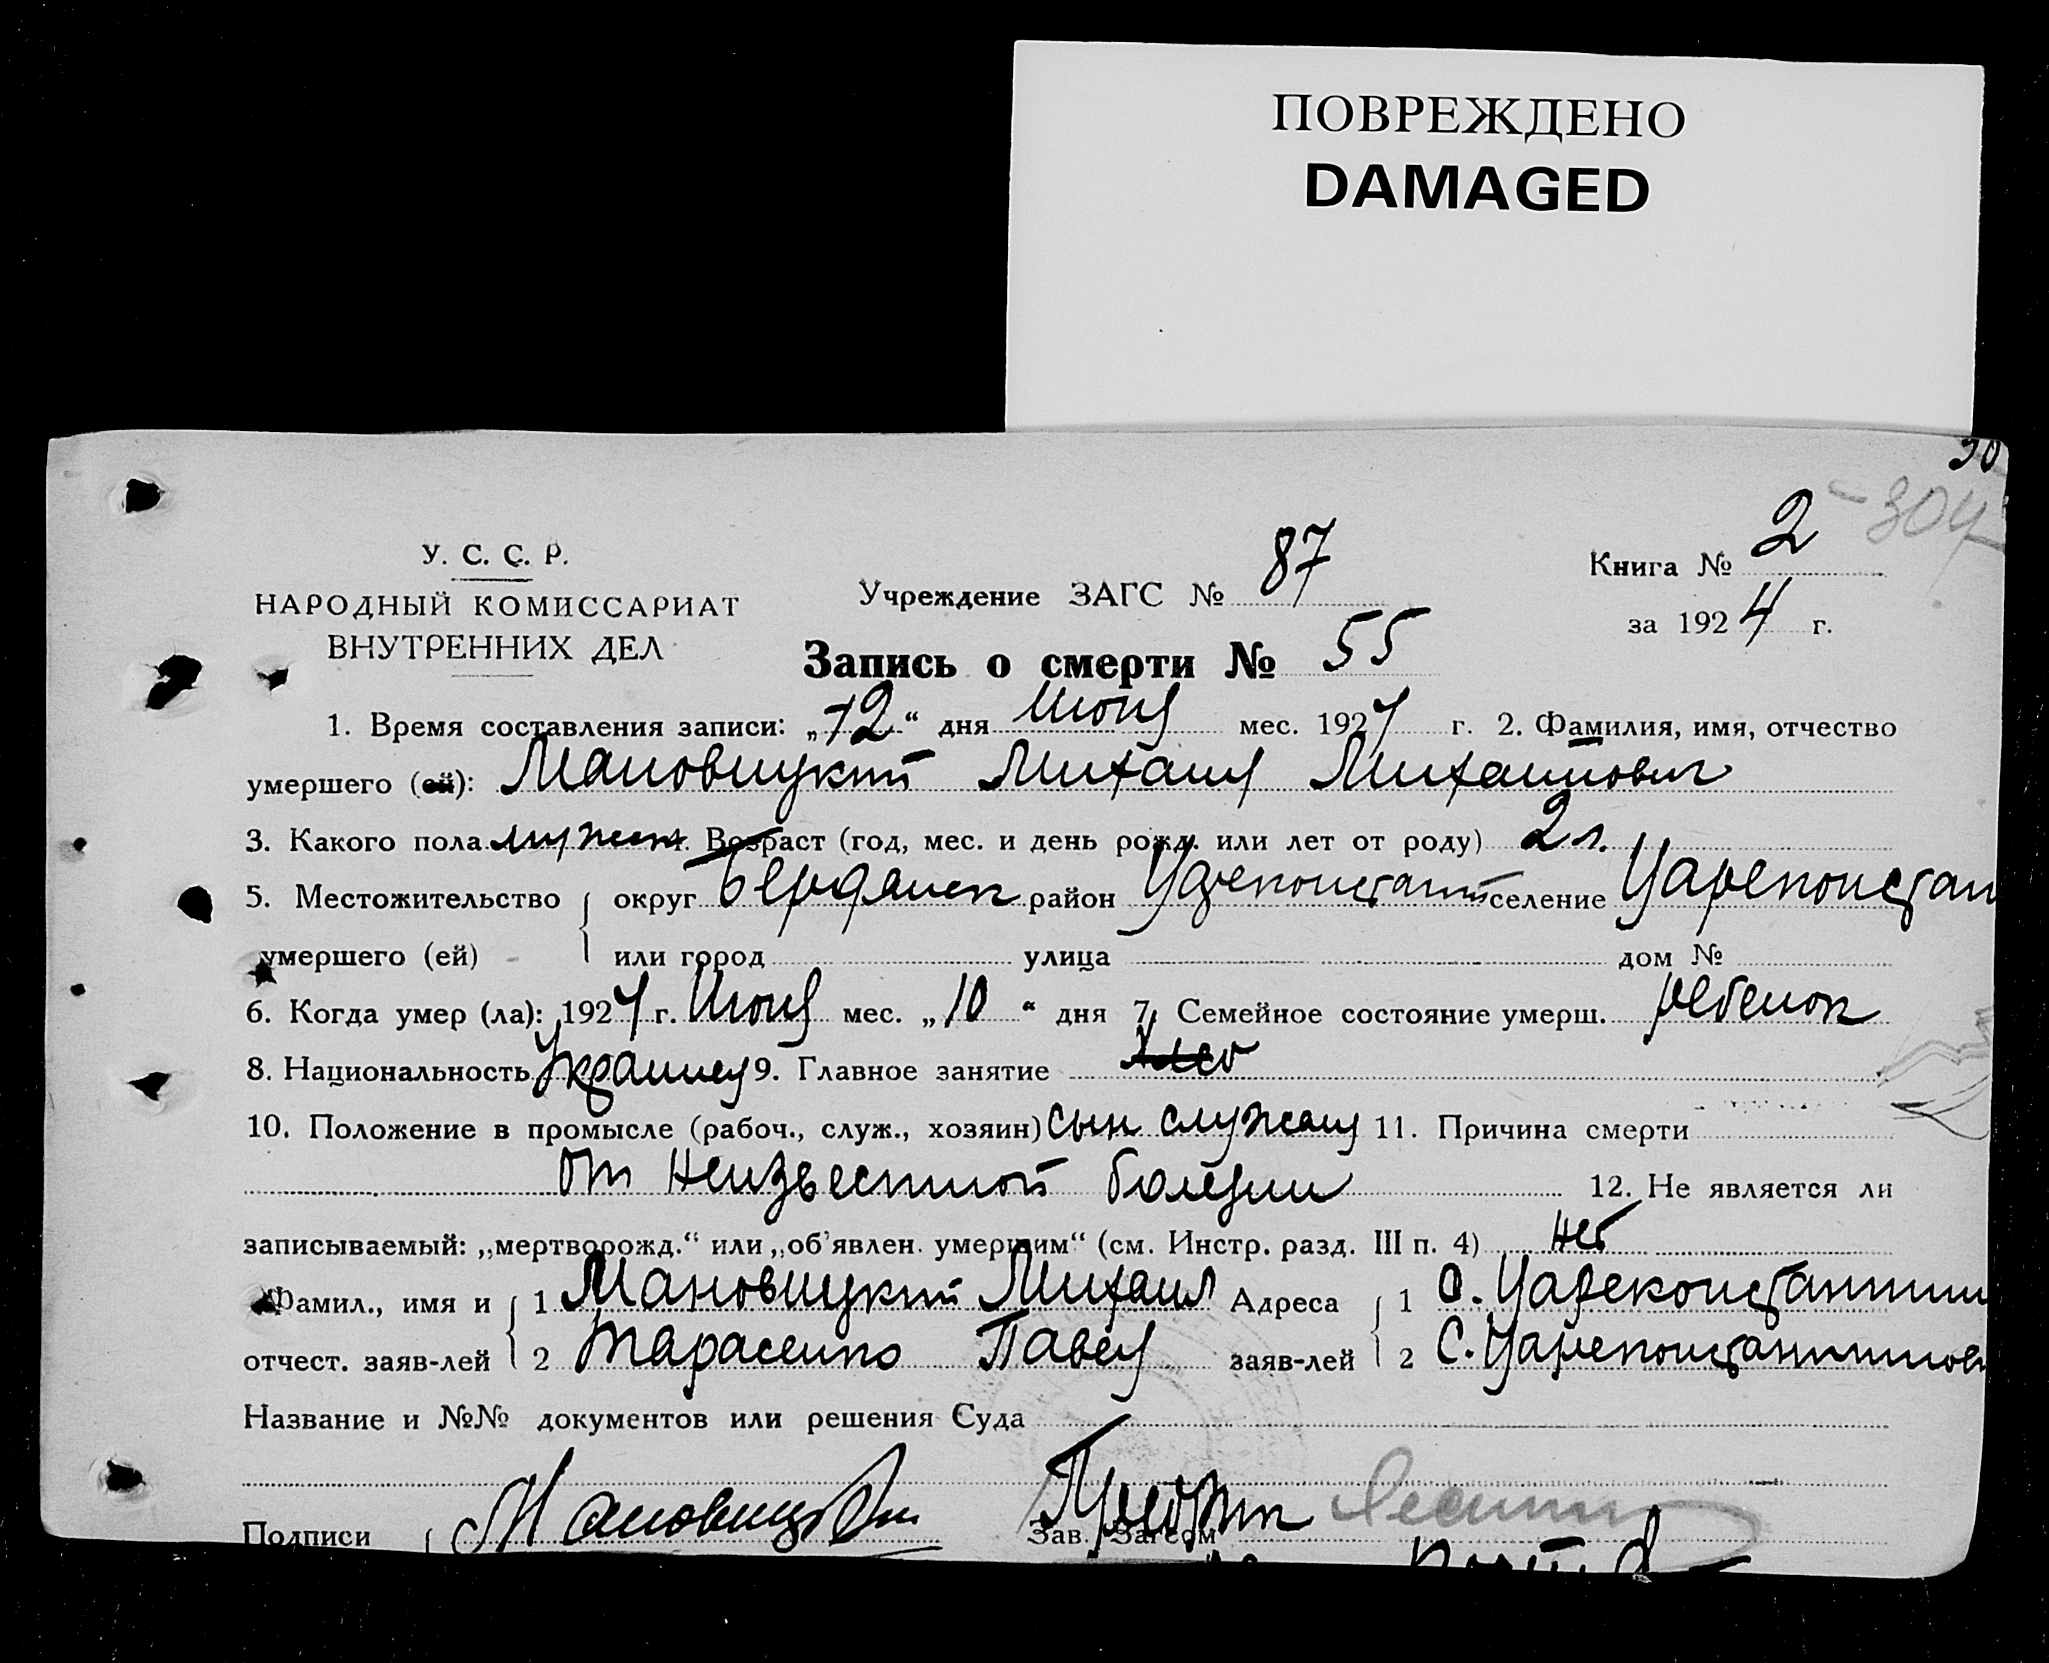 ПОВРЕЖДЕНО
DAMAGED
30
304
У. С. С. Р.
НАРОДНЫЙ КОМИССАРИАТ
ВНУТРЕННИХ ДЕЛ
Учреждение ЗАГС № 87
Книга № 2
за 1924 г.
Запись о смерти № 55
1. Время составления записи: „12“ дня Июня мес. 1924 г. 2. Фамилия, имя, отчество
умершего (ей): Мановицкий Михаил Михаилович
3. Какого пола мужск. Возраст (год, мес. и день рожд. или лет от роду) 2 л.
5. Местожительство округ Бердянск район Цареконстант селение Цареконстан
умершего (ей) или город улица дом №
6. Когда умер (ла): 1924 г. Июня мес. „10“ дня 7. Семейное состояние умерш. ребенок
8. Национальность Украинец 9. Главное занятие
10. Положение в промысле (рабоч., служ., хозяин) сын служащ 11. Причина смерти
От неизвестной болезни 12. Не является ли
записываемый: „мертворожд.“ или „об'явлен. умершим“ (см. Инстр. разд. III п. 4) нет
Фамил., имя и 1 Мановицкий Михаил Адреса 1 С. Цареконстантин
отчест. заяв-лей 2 Тарасенко Павел заяв-лей 2 С. Цареконстантинов
Название и №№ документов или решения Суда
Подписи Мановицкий Зав. Загсом